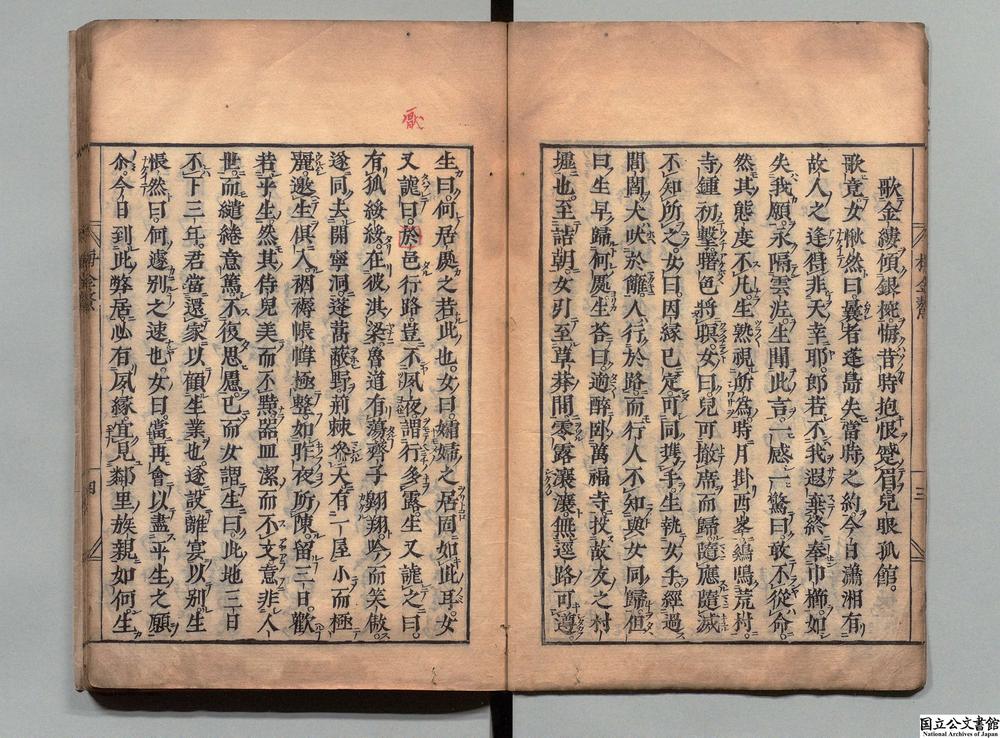 歌金縷傾銀椀悔昔時抱恨蹙眉兒眠孤館。
歌竟。女愀然曰。曩者蓬島失當時之約。今日瀟湘有
故人之逢得非天幸耶。郎若不我遐棄終奉巾櫛如
失我願。永隔雲泥。生聞此言一感一驚曰。敢不從命。
然其態度不凡。生熟視所爲。時月掛西峯鷄鳴荒村。
寺鍾初擊曙色將暝。女曰。兒可撤席而歸。隨應隨滅
不知所之。女曰因緣已定可同携手。生執女手。經過
閭閻。犬吠於籬。人行於路。而行人不知與女同歸。但
曰生早歸何處。生荅曰。適醉臥萬福寺投故友之村
墟也。至詰朝。女引至草莽間。零露瀼瀼無逕路可遵。
生曰。何居處之若此也。女曰。孀婦之居固如此耳。女
又謔曰。於邑行路豈不夙夜謂行多露。生又謔之曰。
有狐綏綏。在彼淇梁。魯道有蕩齊子翱翔。吟而笑傲。
遂同去開寧洞。蓬蒿蔽野荊棘參天有一屋小而極
麗。邀生俱入。裀褥帳幃極整如昨夜所陳。留三日。歡
若平生。然其侍兒美而不黠。器皿潔而不文。意非人
世。而繾綣意篤不復思慮。已而女謂生曰。此地三日
不下三年。君當還家以顧生業也。遂設離宴以別。生
悵然曰。何遽別之速也。女曰。當再會以盡平生之願
尒。今日到此弊居。必有夙緣。宜見鄰里族親如何。生
梅金鰲
三
四
国立公文書館
National Archives of Japan